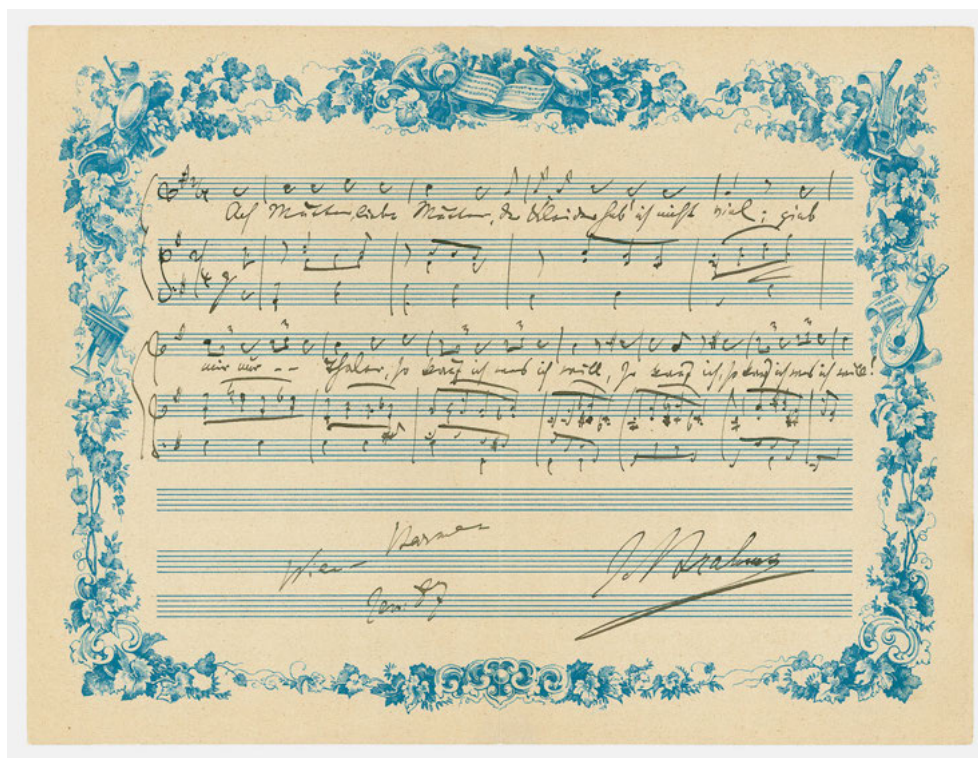 Ach Mutter, liebe Mutter, der Kleider hab ich nicht viel; gieb
mir nur -- Thaler, so kauf ich was ich will, so kauf ich, so kauf ich was ich will!
Wien - Barmen
J. Brahms